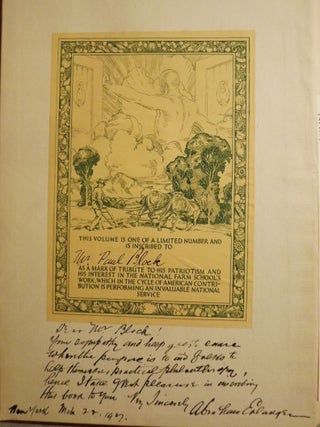 THIS VOLUME IS ONE OF A LIMITED NUMBER AND
IS INSCRIBED TO
Mr Paul Block
AS A MARK OF TRIBUTE TO HIS PATRIOTISM AND
HIS INTEREST IN THE NATIONAL FARM SCHOOL'S
WORK, WHICH IN THE CYCLE OF AMERICAN CONTRI-
BUTION IS PERFORMING AN INVALUABLE NATIONAL
SERVICE
Dear Mr Block!
Your sympathy and help
purpose is to
help practical
hence I take great pleasure in
this book to you Very Sincerely
New York Abraham Erlanger